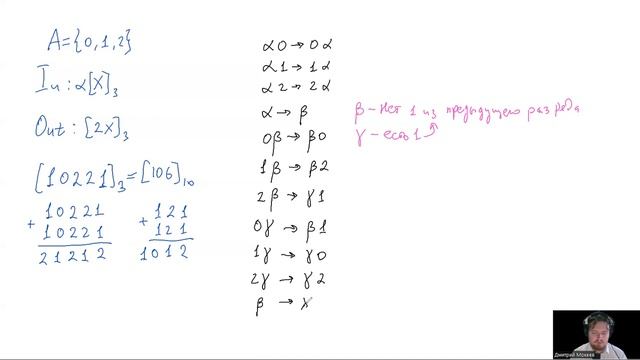 A={0,1,2}
In: α[X]₃
Out: [2X]₃
[10221]₃=[106]₁₀
10221
+
10221
21212
121
+
121
1012
α0→0α
α1→1α
α2→2α
α→β
0β→β0
1β→β2
2β→γ1
0γ→β1
1γ→γ0
2γ→γ2
β→
β-Нет 1 из предыдущего разряда
γ-есть 1
Дмитрий Мокеев